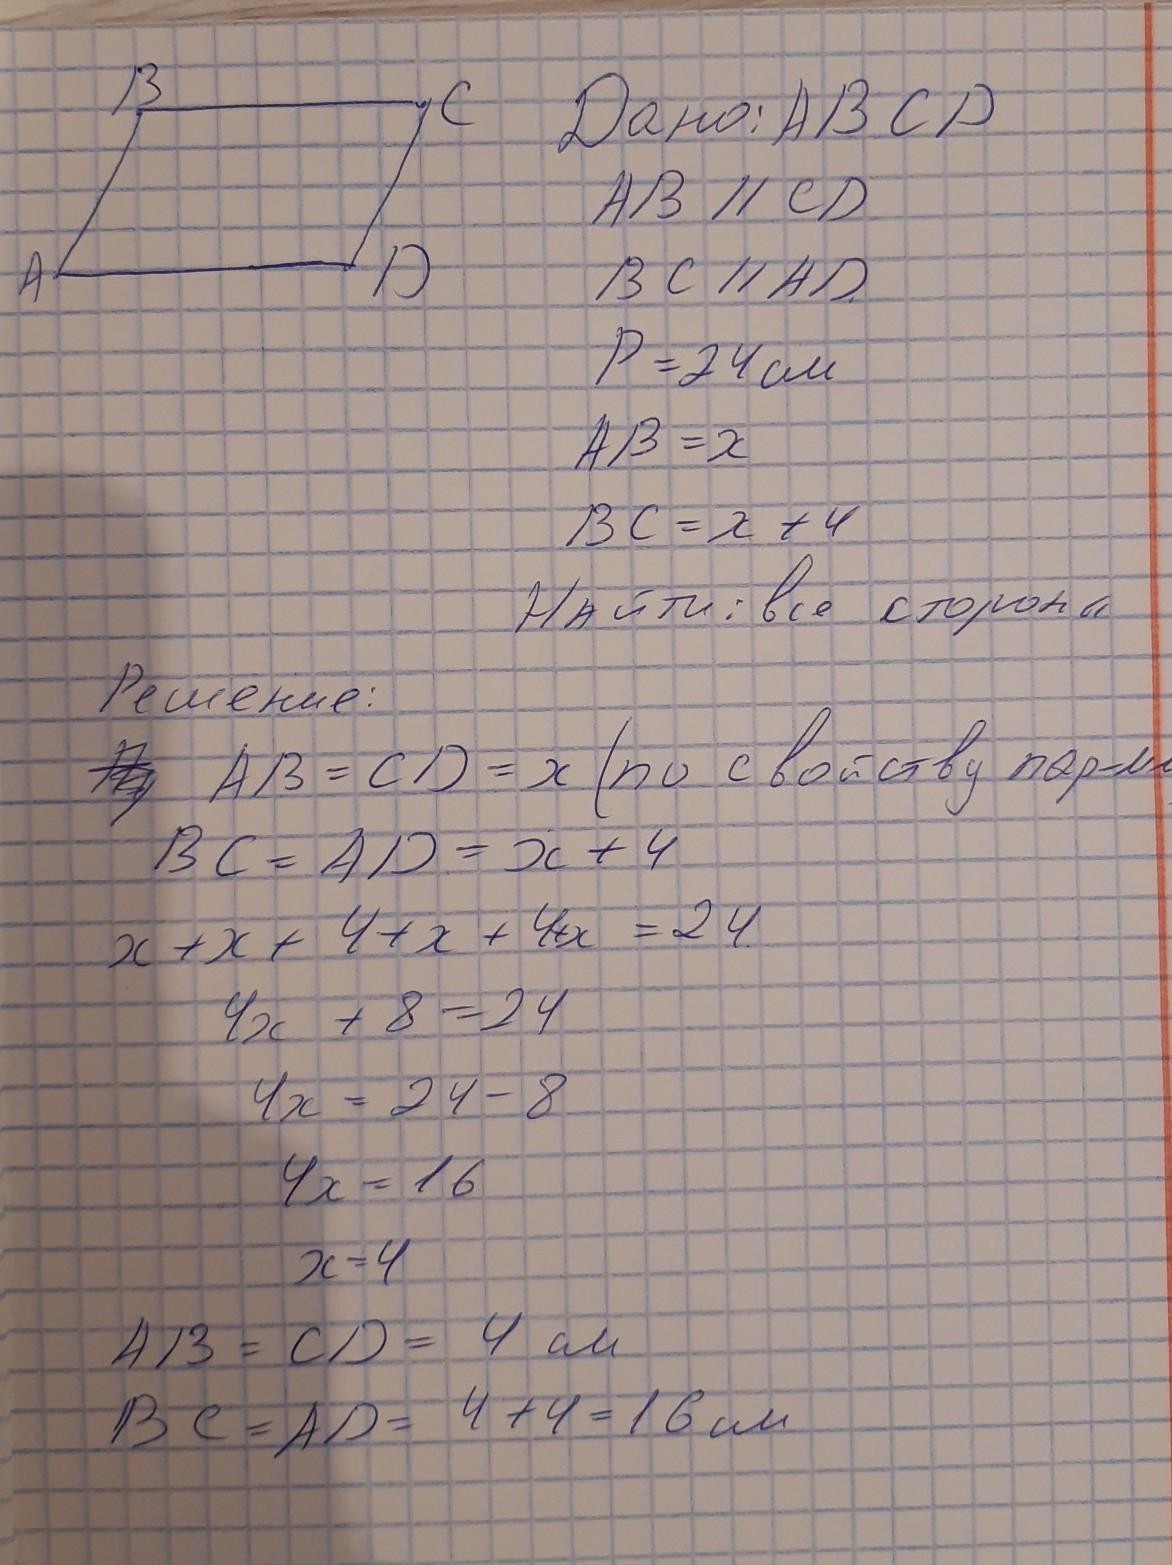 B
C
A
D
Дано: ABCD
AB || CD
BC || AD
P = 24 см
AB = x
BC = x + 4
Найти: все стороны
Решение:
AB = CD = x (по свойству пар-мм
BC = AD = x + 4
x + x + 4 + x + 4+x = 24
4x + 8 = 24
4x = 24 - 8
4x = 16
x = 4
AB = CD = 4 см
BC = AD = 4 + 4 = 16 см